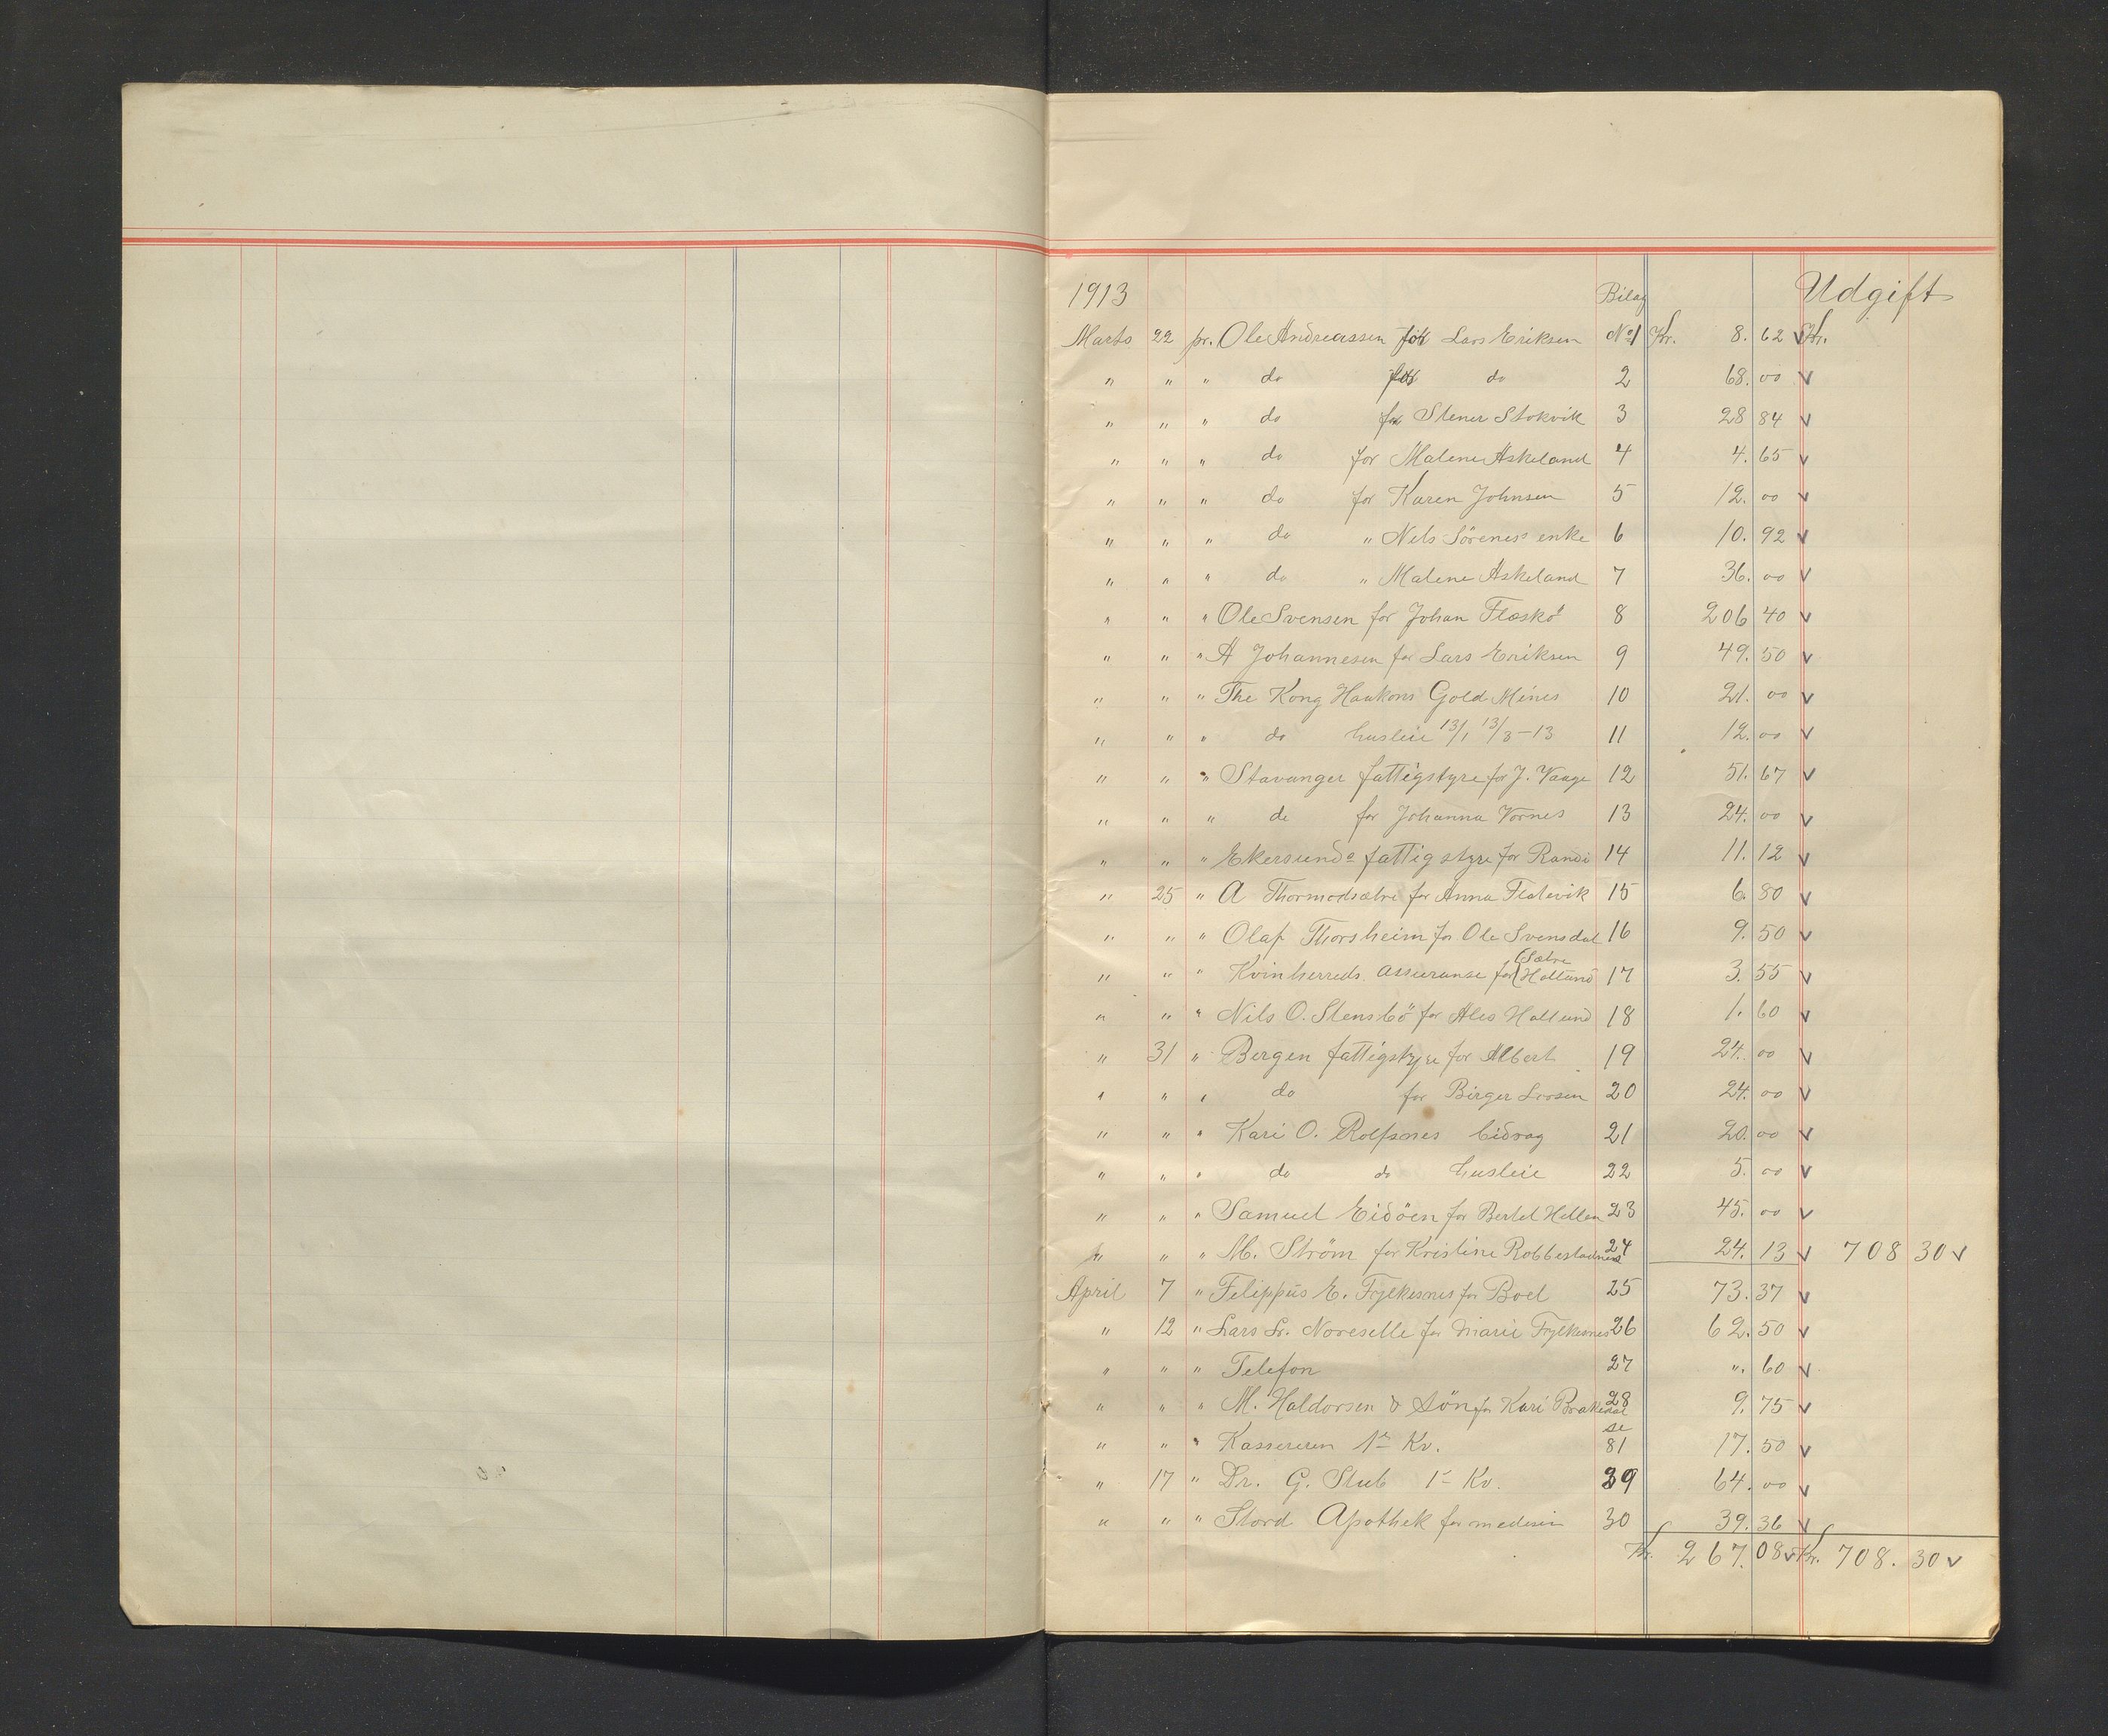 1913 Bilag Udgift
Marts 22 pr. Ole Andreassen for Lars Eriksen No 1 Kr. 8. 62 v Kr.
" " " do for do 2 68. 00 v
" " " do for Stener Stokvik 3 28 84 v
" " " do for Malene Askeland 4 4. 65 v
" " " do for Karen Johnsen 5 12. 00 v
" " " do " Nels Sörenes enke 6 10. 92 v
" " " do " Malene Askeland 7 36. 00 v
" " " Ole Svensen for Johan Flæskö 8 206 40 v
" " " A Johannesen for Lars Eriksen 9 49. 50 v
" " " The Kong Haakons Gold Mines 10 21. 00 v
" " " do husleie 13/1 13/3-13 11 12. 00 v
" " " Stavanger fattigstyre for J. Vaage 12 51. 67 v
" " " do for Johanna Vornes 13 24. 00 v
" " " Ekersunds fattigstyre for Randi 14 11. 12 v
" 25 " A Thormodsætre for Anna Flatevik 15 6. 80 v
" " " Olaf Thorsheim for Ole Svensdal 16 9. 50 v
" " " Kvinherreds Assuranse for (Sætre (Hatlund 17 3. 55 v
" " " Nils O. Stensbö for Hatlund 18 1. 60 v
" 31 " Bergen fattigstyre for Albert 19 24. 00 v
" " " do for Birger 20 24. 00 v
" " " Kari O. Rolfsnes bidrag 21 20. 00 v
" " " do do husleie 22 5. 00 v
" " " Samuel Eidöen for Bertel 23 45. 00 v
" " " M. Ström for Kristine Robbestadnes 24 24. 13 v 708 30 v
April 7 " Filippus E. Fylkesnes for Boel 25 73. 37 v
" 12 " Lars Noreselle for Marie Fylkesnes 26 62. 50 v
" " " Telefon 27 ". 60 v
" " " M. Haldorsen & Sön for Kari 28 9. 75 v
" " " Kassereren 1ste Kv. se 81 17. 50 v
" 17 " Dr. G. Stub 1ste Kv. 29 64. 00 v
" " " Stord Apothek for medesin 30 39. 36 v
Kr. 267. 08 v Kr. 708. 30 v